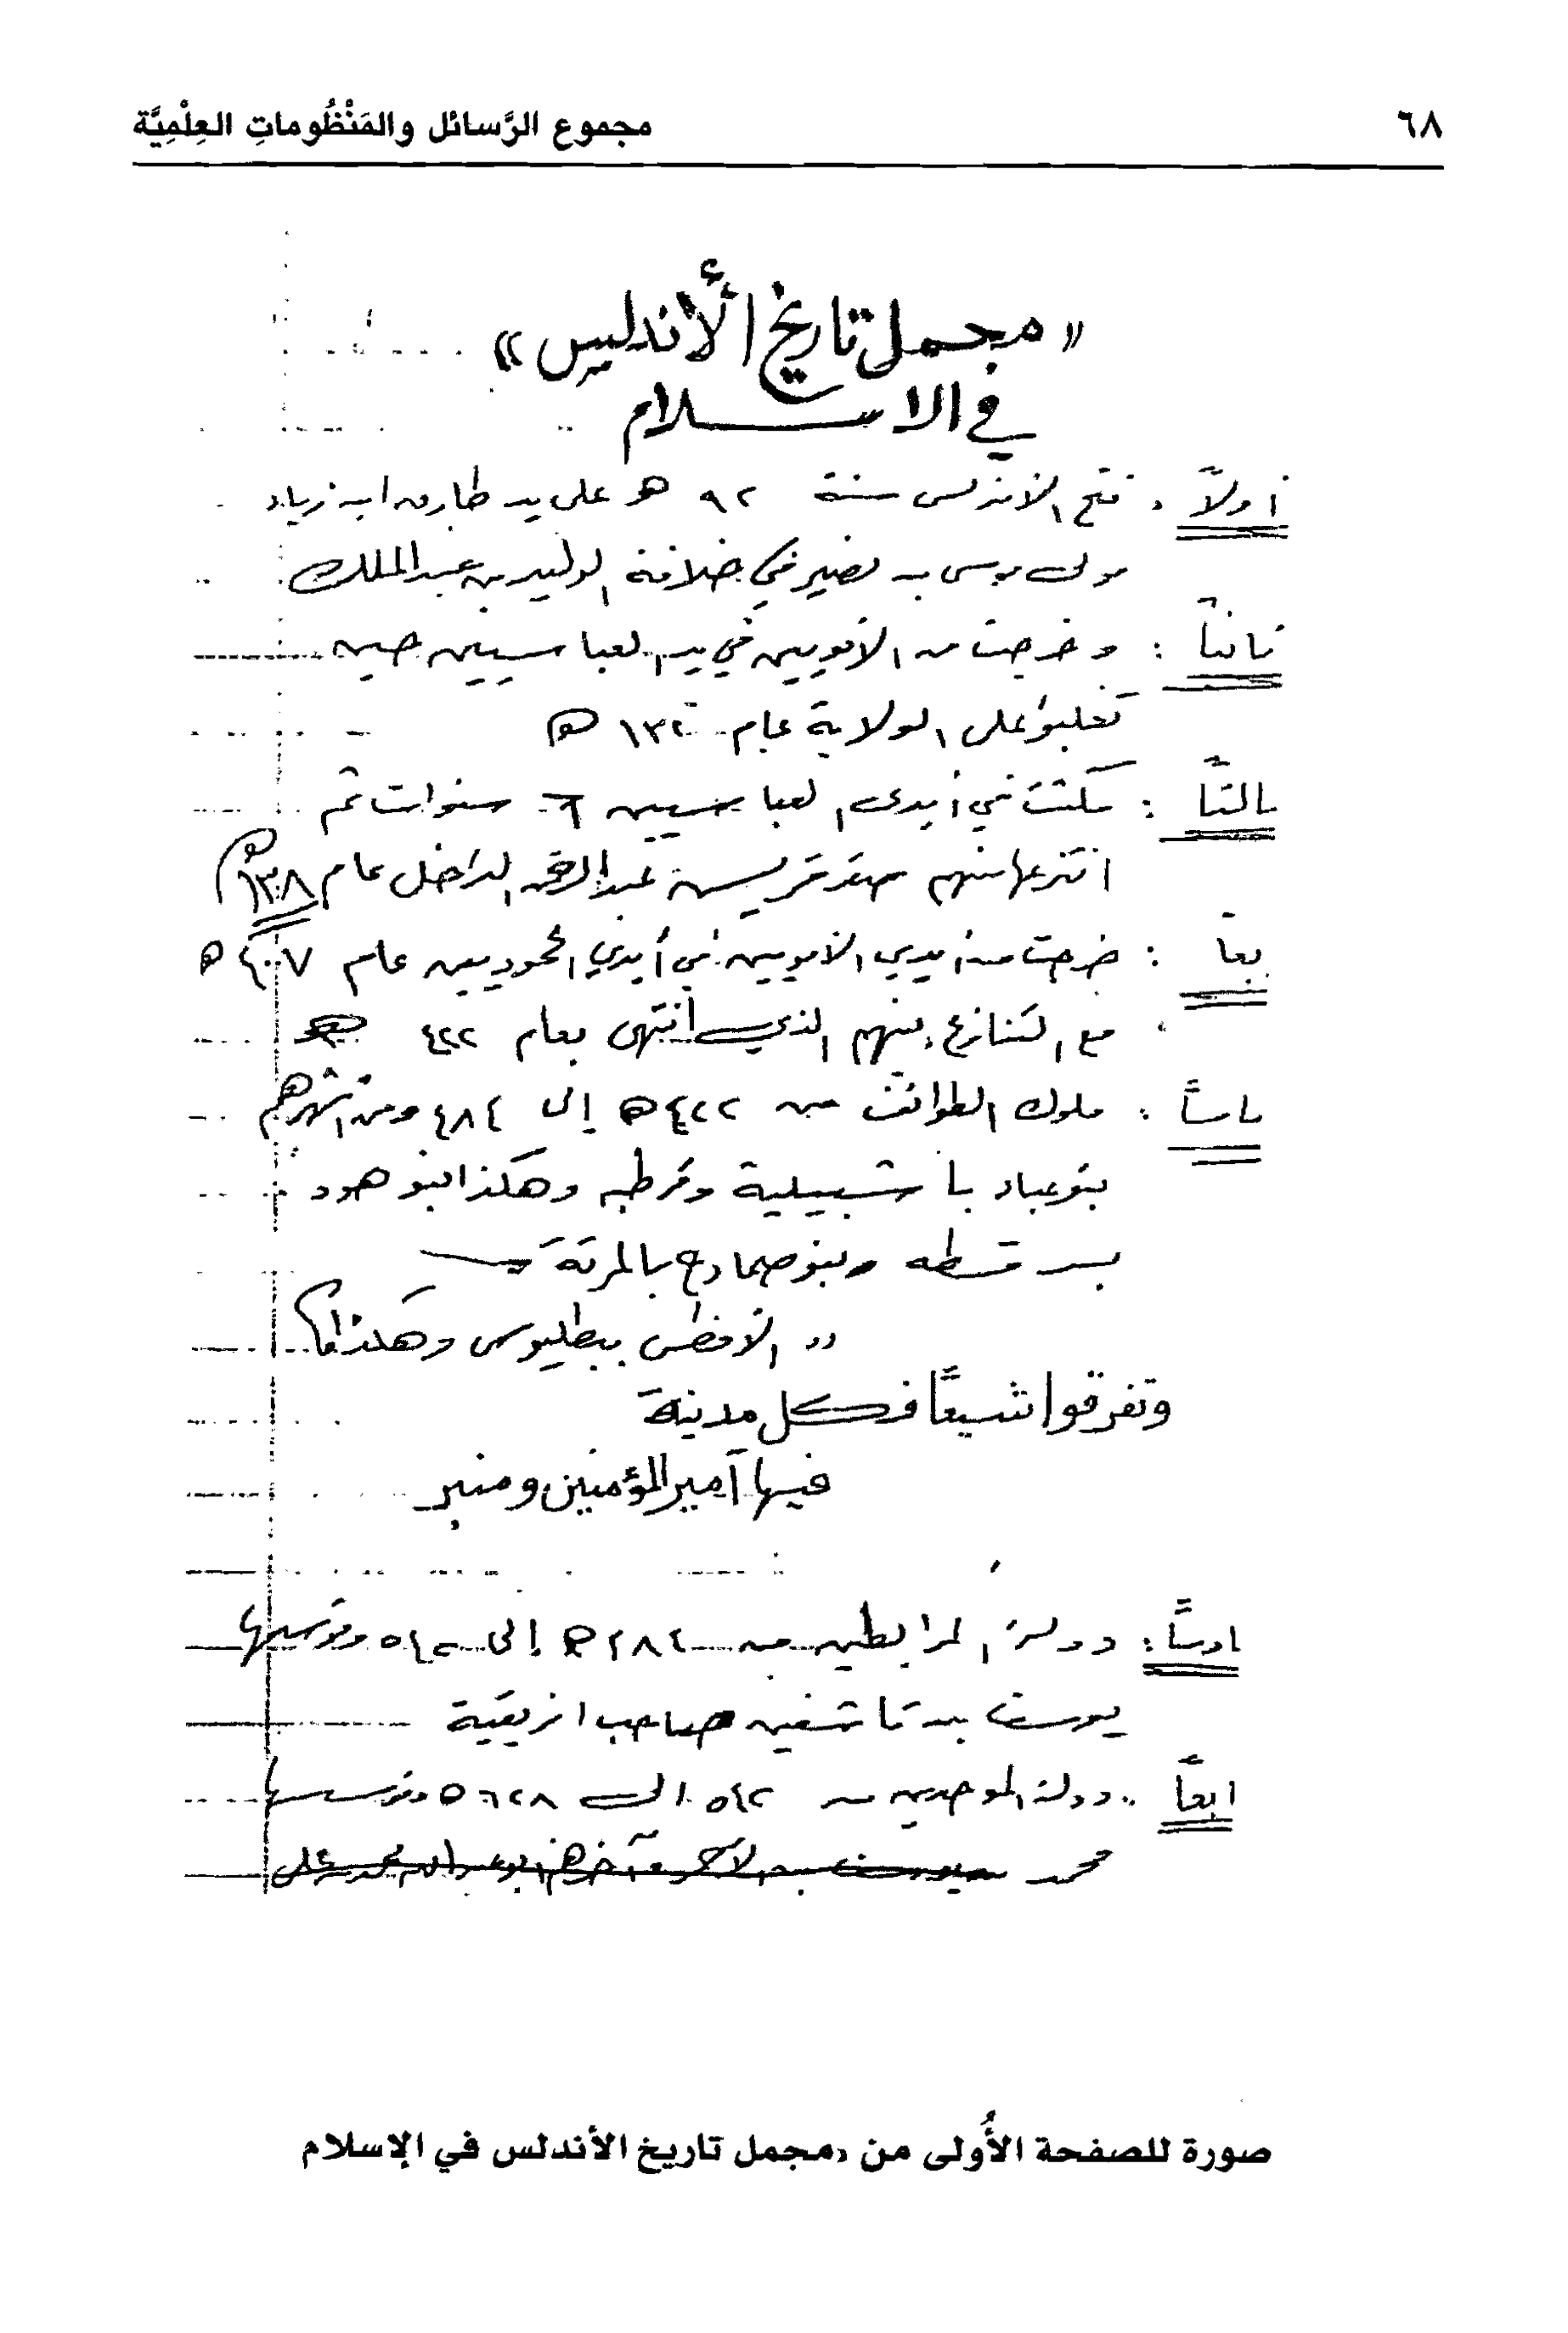 ٦٨
مجموع الرَّسائل والمَنْظُوماتِ العِلْمِيَّة
«مجمل تاريخ الأندليس»
في الاسلام
أولاً : فتح الأندلس سنة ٩٢ هـ على يد طارق ابن زياد
مولى موسى بن نصير في خلافة الوليد بن عبد الملك
ثانياً : وخرجت من الأمويين في يد العباسيين حين
تغلبوا على الولاية عام ١٣٢ هـ
ـالثاً : مكثت في أيدي العباسيين ٦ سنوات ثم
انتزعها منهم صقر قريش عبد الرحمن الداخل عام ١٣٨ هـ
ـبعا : خرجت من أيدي الأمويين في أيدي الحموديين عام ٤٠٧ هـ
مع التنازع بينهم الذي انتهى بعام ٤٢٢ هـ
ـامساً : ملوك الطوائف من ٤٢٢ هـ إلى ٤٨٤ ومن أشهرهم
بنو عباد باشبيلية وقرطبه وهكذا بنو هود
بسرقسطه وبنو صمادح بالمرية
〃 الأفطس ببطليوس وهكذا
وتفرقوا شيعًا فكل مدينة
فيها أمير المؤمنين ومنبر
ـادساً : دولة المرابطين من ٤٨٤ هـ إلى ٥٤٢ ومؤسسها
يوسف بن تاشفين صاحب افريقية
ـابعاً : دولة الموحدين من ٥٤٢ الى ٦٢٨ هـ ومؤسسها
محمد
صورة للصفحة الأُولى من «مجمل تاريخ الأندلس في الإسلام